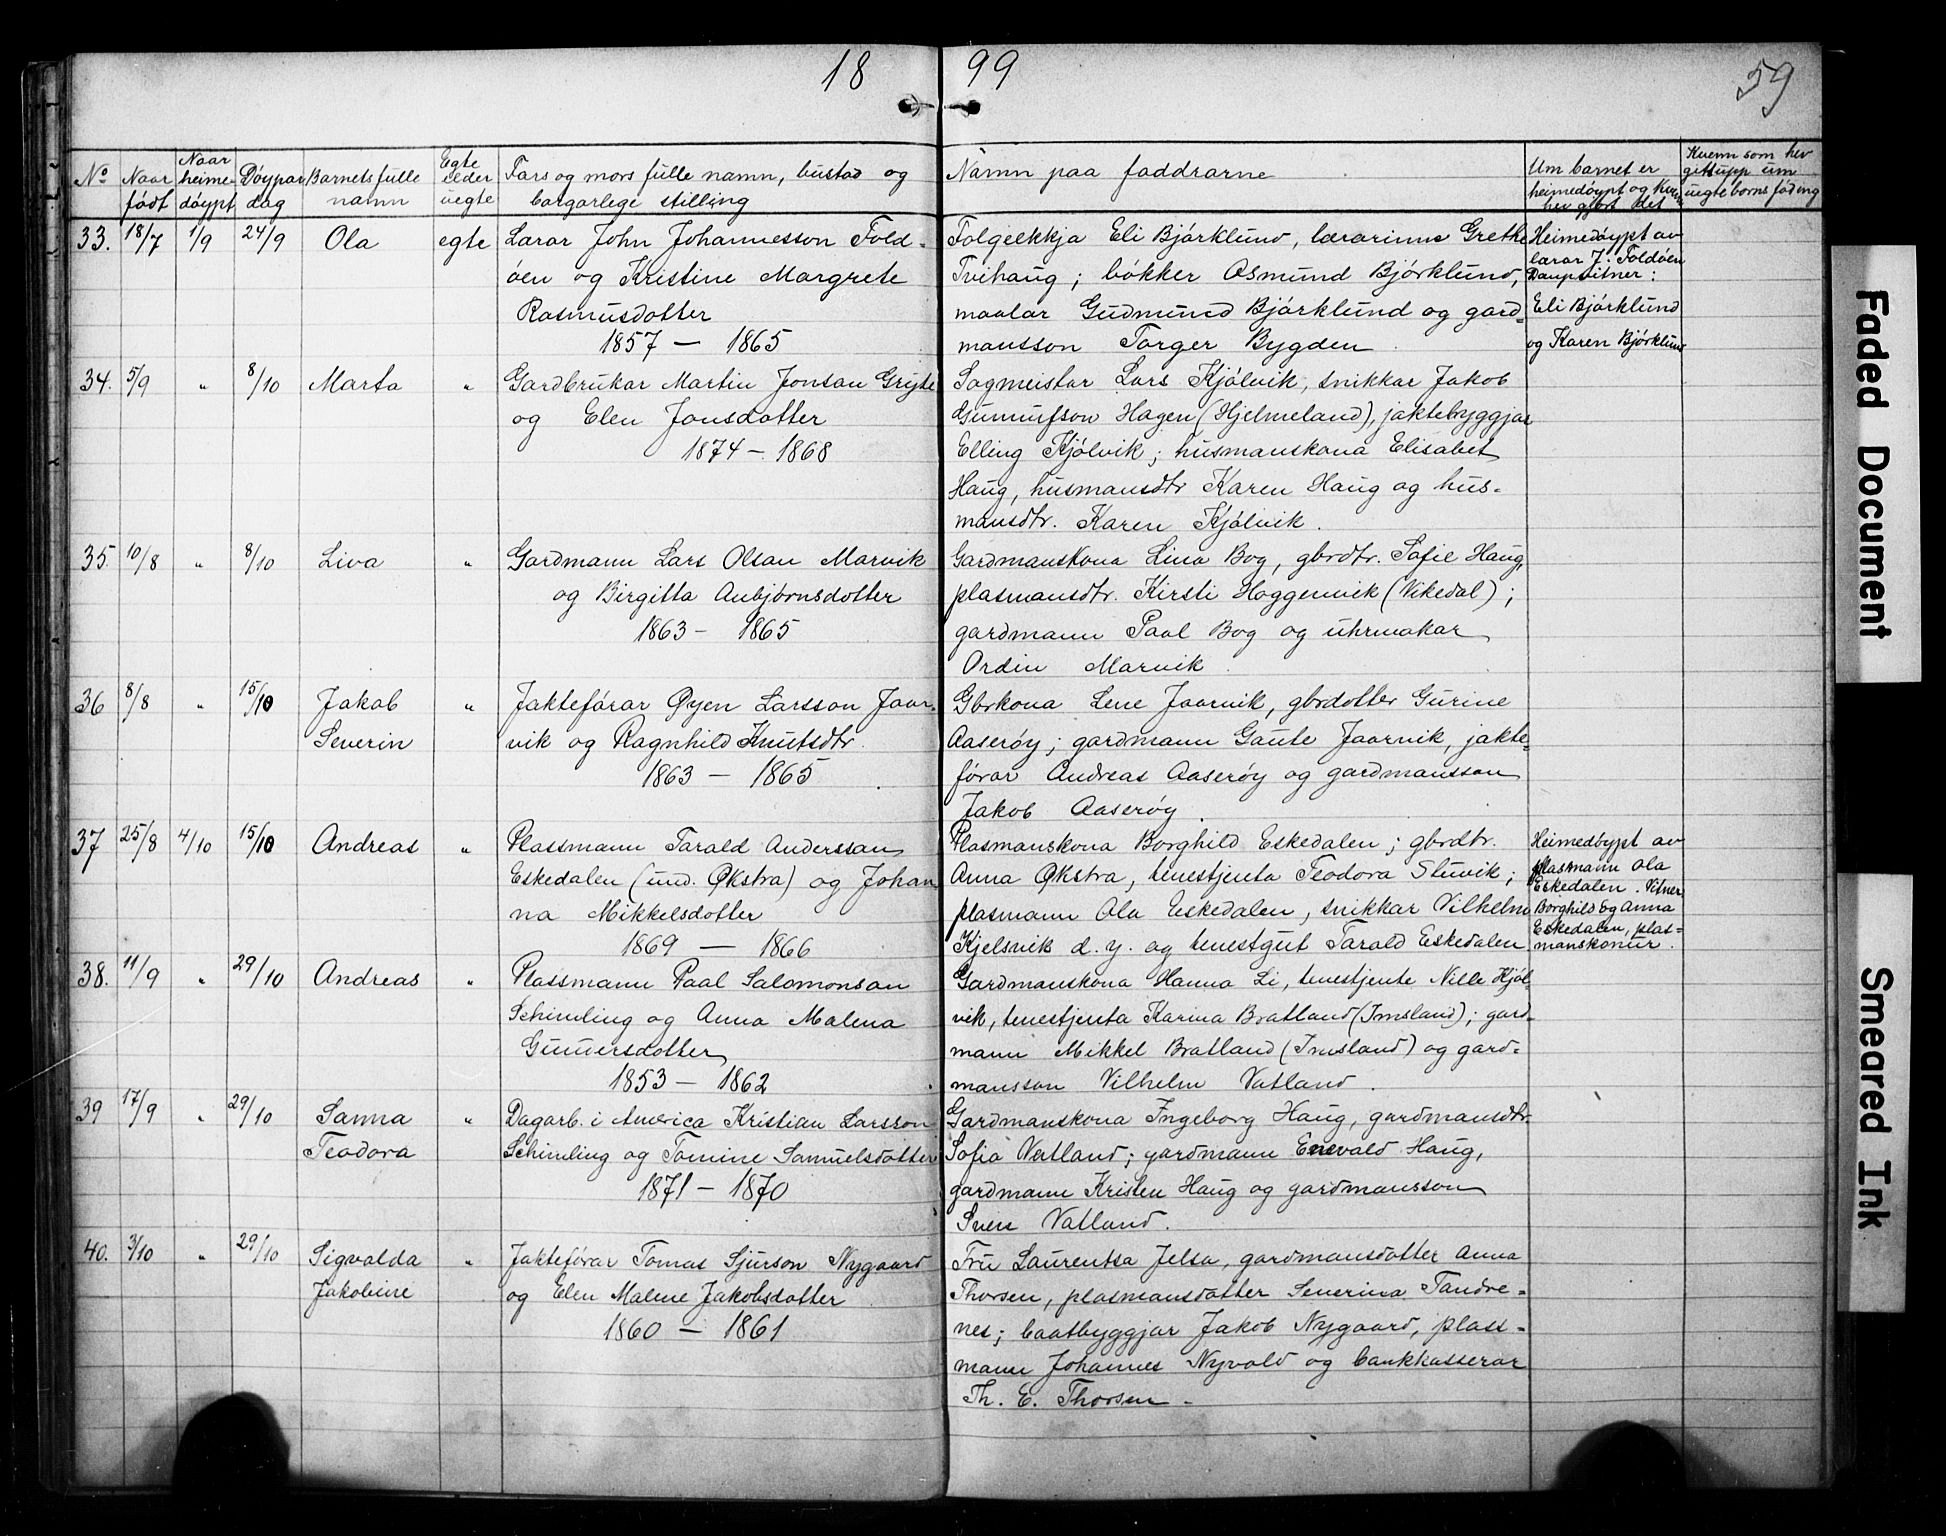 18 99
59
No
Naar født
Naar heimedøypt
Døypardag
Barnets fulle namn
Egte elder uegte
Fars og mors fulle namn, bustad og borgarlege stilling
Namn paa faddrarne
Um barnet er heimedøypt og kven hev gjort det
Kvenn som hev gitt upp um uegte borns føding
33. 18/7 1/9 24/9 Ola egte
Lærar John Johannesson Fold-
øen og Kristine Margrete
Rasmusdotter
1857 – 1865
Folgeekkja Eli Bjørklund, lærarinne Grethe
Tvihaug; bøkker Osmund Bjørklund,
maalar Gudmund Bjørklund og gard-
mansson Torger Bygden
Heimedøypt av
lærar J. Foldøen
Daupvitner:
Eli Bjørklund
og Karen Bjørklund
34. 5/9 " 8/10 Marta "
Gardbrukar Martin Jonson Grijte
og Elen Jonsdotter
1874 – 1868
Sagmeistar Lars Kjølvik, snikkar Jakob
Gunnufson Hagen (Hjelmeland), jaktebyggjar
Elling Kjølvik; husmanskona Elisabet
Haug, husmansdtr Karen Haug og hus-
mansdtr. Karen Kjølvik.
35. 10/8 " 8/10 Liva "
Gardmann Lars Olson Marvik
og Birgitta Anbjørnsdotter
1863 – 1865
Gardmanskona Lina Bog, gbrdtr. Sofie Haug,
plasmansdtr. Kirsti Hoggenvik (Vikedal);
gardmann Paal Bog og uhrmakar
Ordin Marvik.
36 8/8 " 15/10 Jakob
Severin "
Jakteførar Øyen Larsson Jaar-
vik og Ragnhild Knutsdtr.
1863 – 1865
Gbrkona Lene Jaarvik, gbrdotter Gurine
Aaserøy; gardmann Gaute Jaarvik, jakte-
førar Andreas Aaserøy og gardmansson
Jakob Aaserøy.
37 25/8 4/10 15/10 Andreas "
Plassmann Tarald Andersson
Eskedalen (und. Økstra) og Johan
na Mikkelsdotter
1869 – 1866
Plasmanskona Borghild Eskedalen; gbrdtr.
Anna Økstra, tenestjenta Teodora Stuvik;
plasmann Ola Eskedalen, snikkar Vilhelm
Kjelsvik d. y. og tenestgut Tarald Eskedalen
Heimedøypt av
plasmann Ola
Eskedalen. Vitner
Borghild og Anna
Eskedalen, plas-
manskonur.
38. 11/9 " 29/10 Andreas "
Plassmann Paal Salomonson
Schimling og Anna Malena
Gunnersdotter
1853 – 1862
Gardmanskona Hanna Li, tenestjente Nille Kjøl-
vik, tenestjenta Karina Bratland (Imsland); gard-
mann Mikkel Bratland (Imsland) og gard-
mansson Vilhelm Vatland.
39 17/9 " 29/10 Sanna
Teodora "
Dagarb. i America Kristian Larsson
Schimling og Tomine Samuelsdotter
1871 – 1870
Gardmanskona Ingeborg Haug, gardmansdtr.
Sofia Vatland; gardmann Enevald Haug,
gardmann Kristen Haug og gardmansson
Sven Vatland.
40. 3/10 " 29/10 Sigvalda
Jakobine "
Jakteførar Tomas Sjurson Nygaard
og Elen Malene Jakobsdotter
1860 – 1861
Fru Laurentsa Jelsa, gardmansdotter Anna
Thorsen, plasmansdotter Severina Tandre-
nes; baatbyggjar Jakob Nygaard, plass-
mann Johannes Nyvold og bankkasserar
Th. E. Thorsen –
Faded Document
Smeared Ink